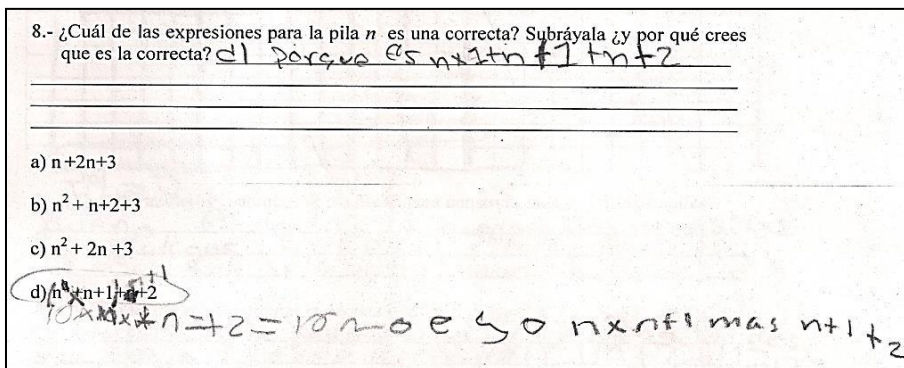 8.- ¿Cuál de las expresiones para la pila n es una correcta? Subráyala ¿y por qué crees
que es la correcta? d) porque es nx1+n+1+n+2
a) n+2n+3
b) n² + n+2+3
c) n² + 2n +3
+1
d) n+n+1+2
n+2= no eso nxn+1 mas n+1+2